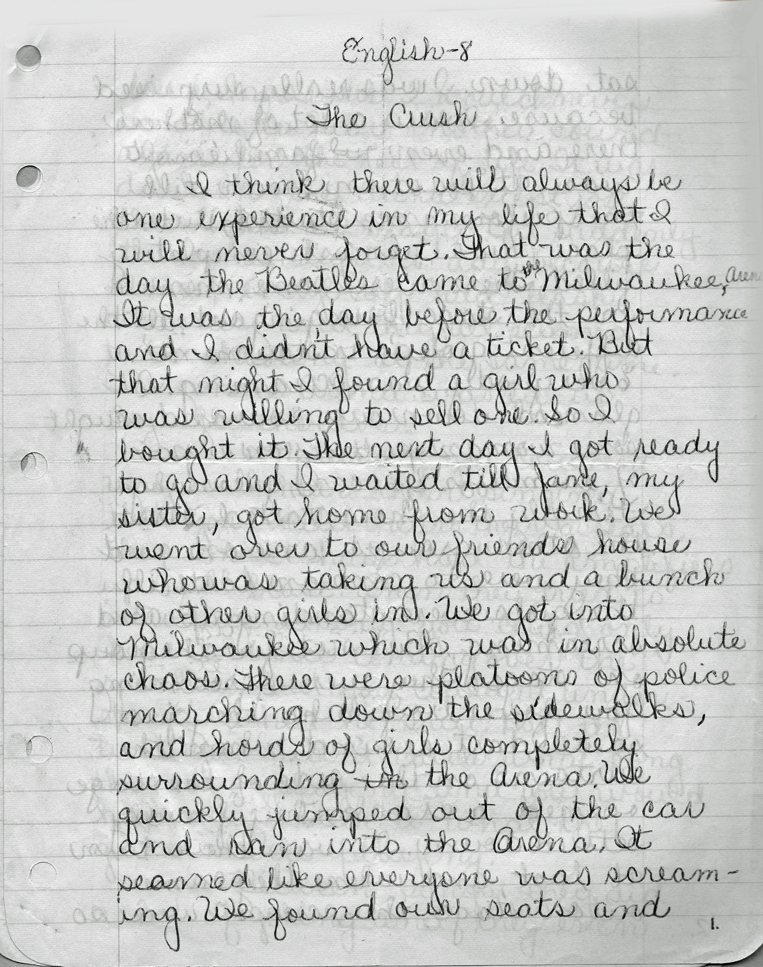 English-8
The Crush
I think there will always be
one experience in my life that I
will never forget. That was the
day the Beatles came to the Milwaukee, Arena
It was the day before the performance
and I didn't have a ticket. But
that night I found a girl who
was willing to sell one. So I
bought it. The next day I got ready
to go and I waited till Jane, my
sister, got home from work. We
went over to our friends house
who was taking us and a bunch
of other girls in. We got into
Milwaukee which was in absolute
chaos. There were platoons of police
marching down the sidewalks,
and hords of girls completely
surrounding in the Arena. We
quickly jumped out of the car
and ran into the Arena. It
seamed like everyone was scream-
ing. We found our seats and
1.